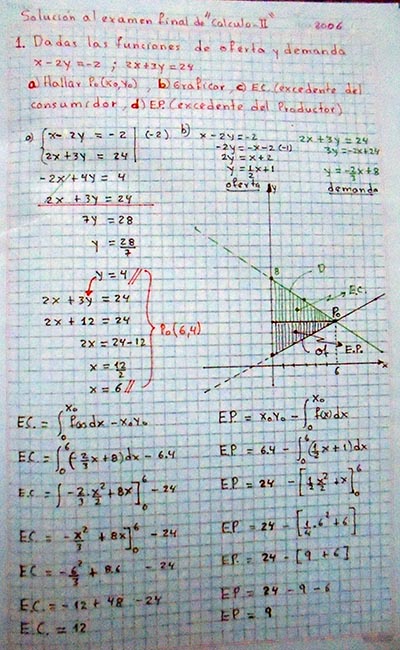 Solución al examen final de "Calculo-II" 2006
1. Dadas las funciones de oferta y demanda
x - 2y = -2 ; 2x + 3y = 24
a) Hallar P₀(x₀,y₀), b) Graficar, c) E.C. (excedente del
consumidor, d) E.P. (excedente del Productor)
a) {x - 2y = -2 | (-2)
{2x + 3y = 24 |
-2x + 4y = 4
2x + 3y = 24
7y = 28
y = 28/7
y = 4 //
2x + 3y = 24
2x + 12 = 24
2x = 24 - 12
x = 12/2
x = 6 //
} P₀(6,4)
b) x - 2y = -2
-2y = -x - 2 (-1)
2y = x + 2
y = 1/2 x + 1
oferta
2x + 3y = 24
3y = -2x + 24
y = -2/3 x + 8
demanda
y
8
D
E.C.
P₀
of
E.P.
6
x
E.C. = ∫₀^x₀ f(x)dx - x₀y₀
E.C. = ∫₀^6 (-2/3 x + 8)dx - 6.4
E.C. = [-2/3 . x²/2 + 8x]₀^6 - 24
E.C. = -x²/3 + 8x]₀^6 - 24
E.C. = -6²/3 + 8.6 - 24
E.C. = -12 + 48 - 24
E.C. = 12
E.P. = x₀y₀ - ∫₀^x₀ f(x)dx
E.P. = 6.4 - ∫₀^6 (1/2 x + 1)dx
E.P. = 24 - [1/2 x²/2 + x]₀^6
E.P. = 24 - [1/4 . 6² + 6]
E.P. = 24 - [9 + 6]
E.P. = 24 - 9 - 6
E.P. = 9